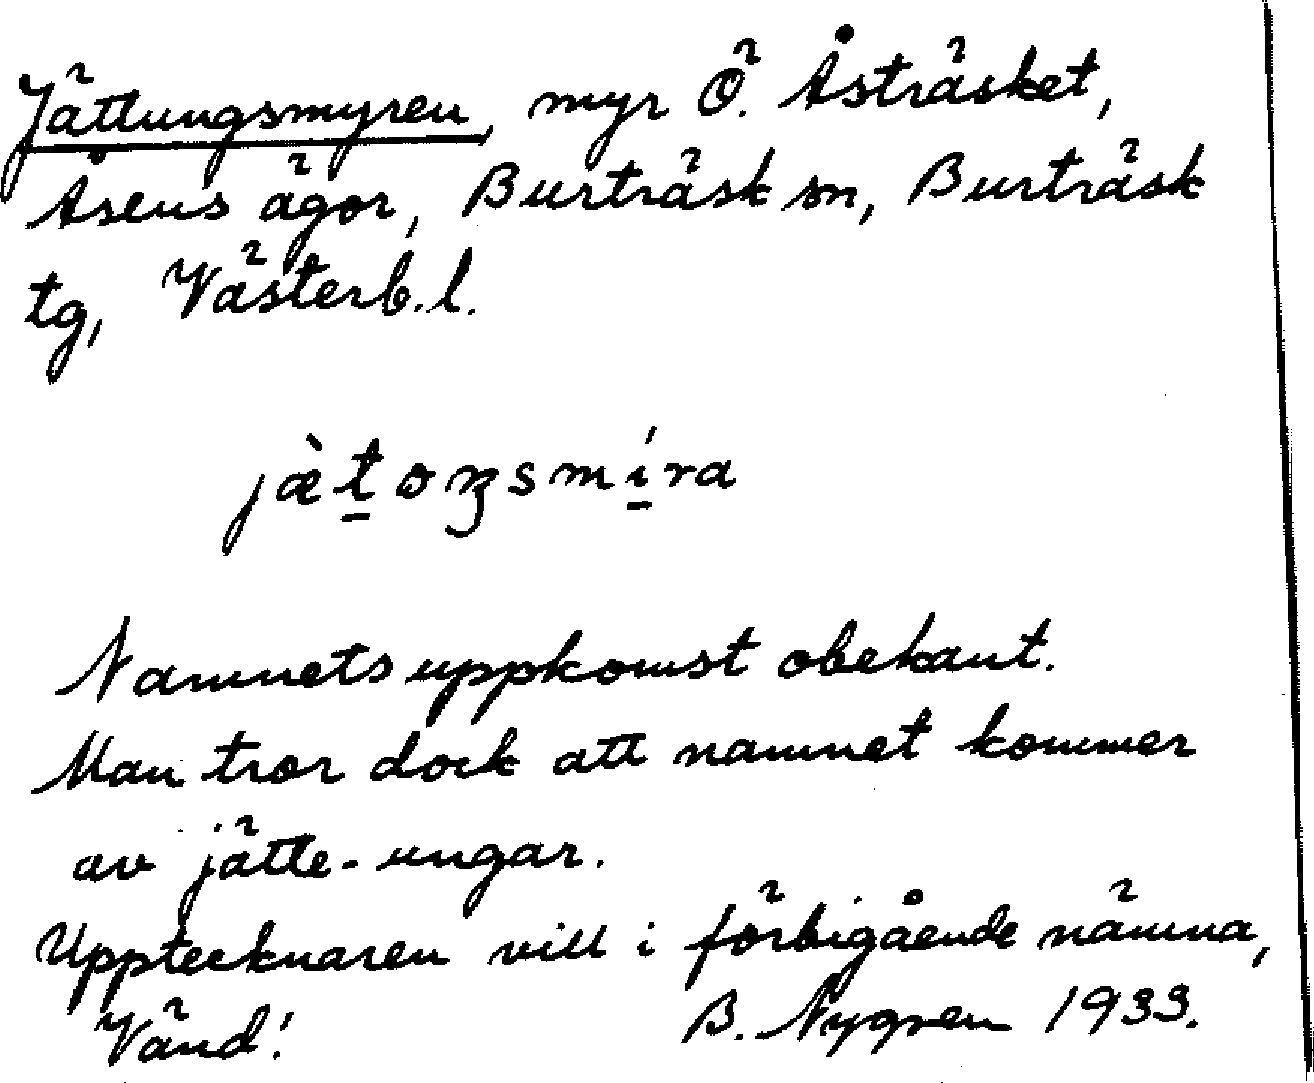 Jättungsmyren, myr Ö. Åsträsket,
Åsens ägor, Burträsk sn, Burträsk
tg, Västerb. l.
jæ̀t̠oŋsmí̠ra
Namnets uppkomst obekant.
Man tror dock att namnet kommer
av jätte-ungar.
Upptecknaren vill i förbigående nämna,
Vänd! B. Nygren 1933.